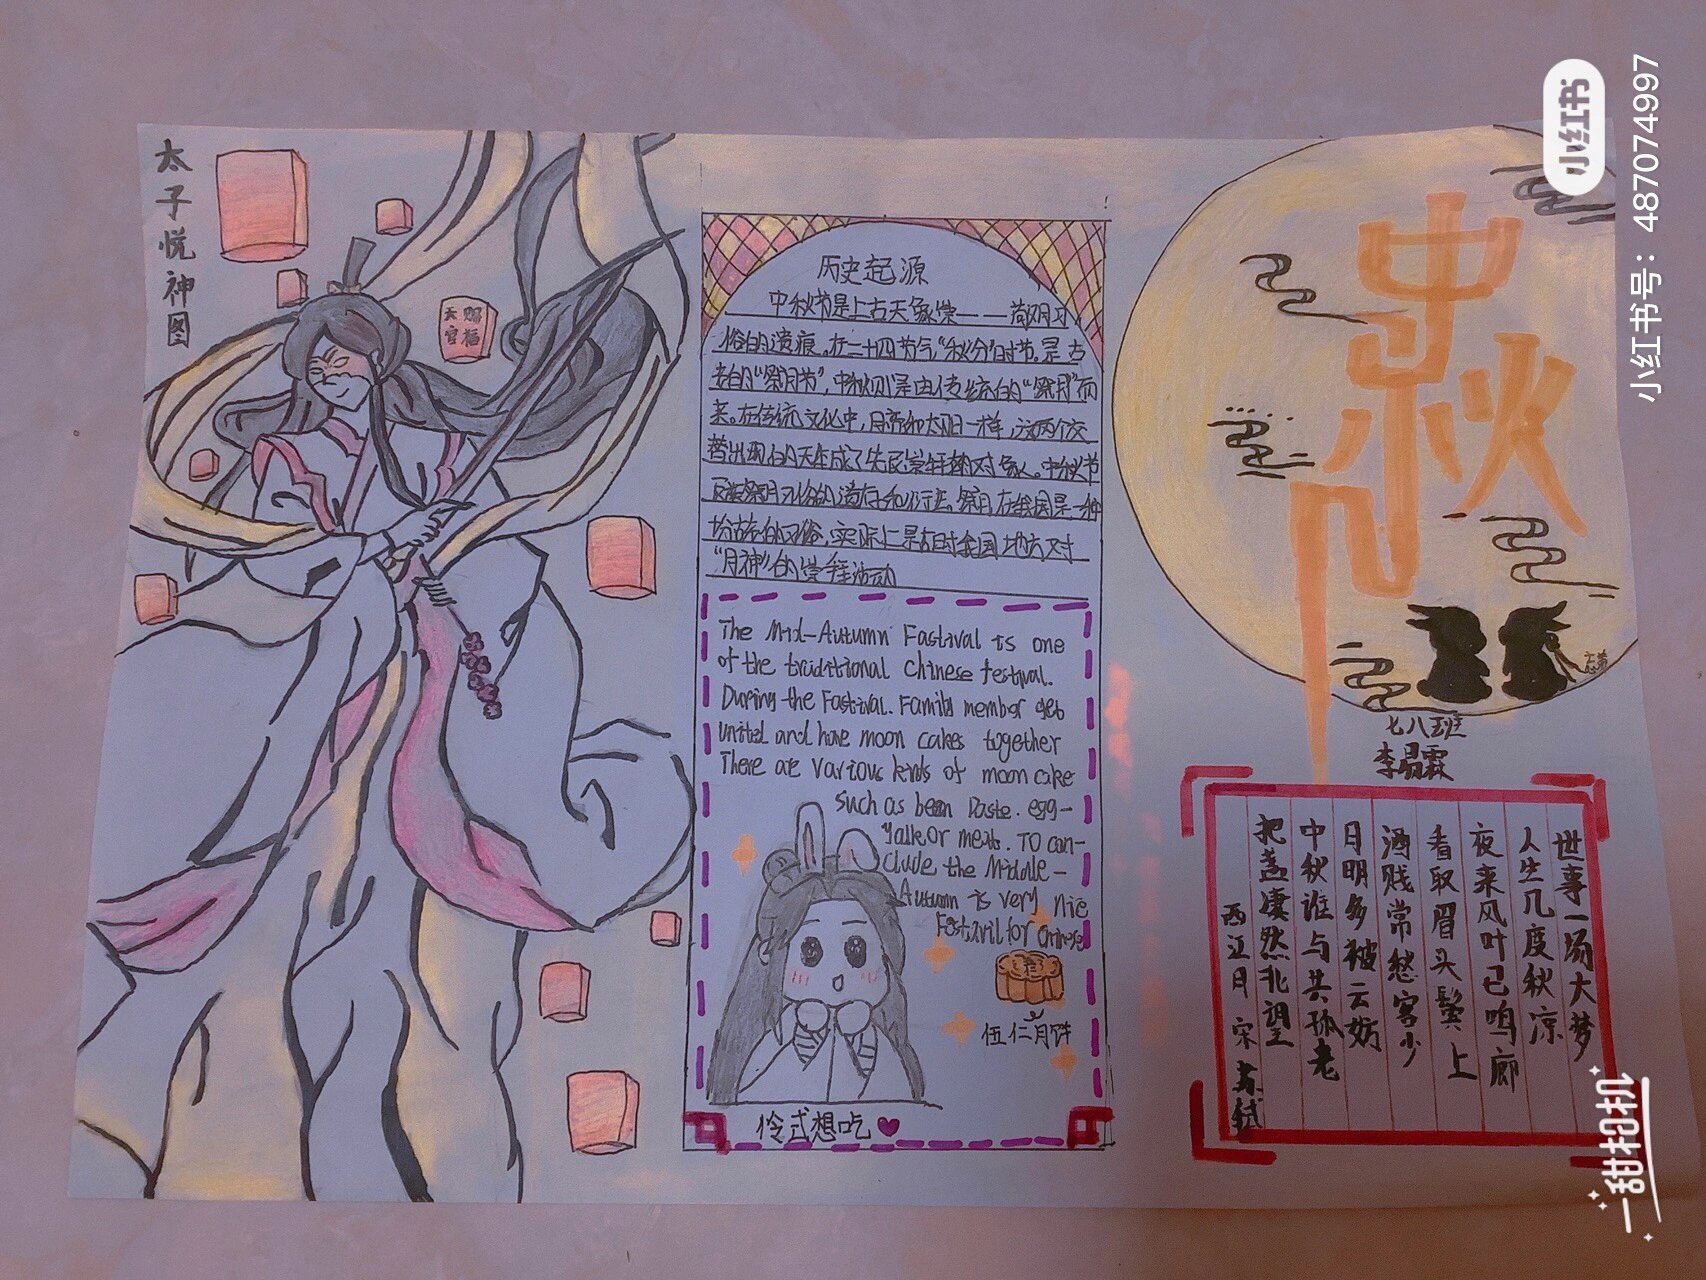 太子悦神图
天官
赐福
历史起源
中秋节是上古天象崇——敬月习
俗的遗痕。在二十四节气“秋分”时节，是古
老的“祭月节”，中秋则是由传统的“祭月”而
来。在传统文化中，月亮和太阳一样，这两个交
替出现的天生成了先民崇拜的对象。中秋节
祭月在我国是一种
古老的习俗，实际上是古时我国地方对
“月神”的崇拜活动
The Mid-Autumn Fastival is one
of the traditional Chinese festival.
During the Fastival. Family member get
united and have moon cakes together
There are various kinds of moon cake
such as bean Paste. egg-
Yalk or meats. TO con-
clude the Middle-
Autumn is very nic
Fastavil for Chinese
伍仁月饼
怜式想吃
中秋
七八班
李易霖
世事一场大梦
人生几度秋凉
夜来风叶已鸣廊
看取眉头鬓上
酒贱常愁客少
月明多被云妨
中秋谁与共孤老
把盏凄然北望
西江月 宋 苏轼
小红书
小红书号：4870774997
一甜相机